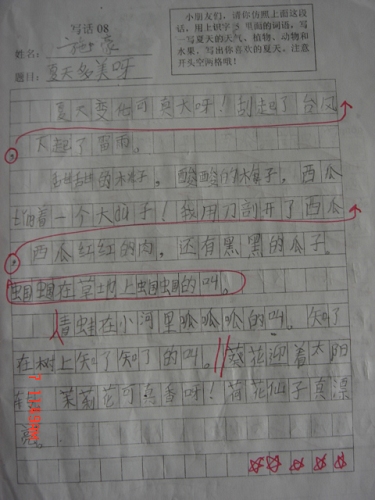 写话 08
姓名：
题目：夏天多美呀
小朋友们，请你仿照上面这段
话，用上识字 里面的词语，写
一写夏天的天气、植物、动物和
水果，写出你喜欢的夏天，注意
开头空两格哦！
夏天变化可真大呀！刮起了台风
下起了雷雨。
甜甜的桃子，酸酸的李子，西瓜
着一个大肚子！我用刀剖开了西瓜
西瓜红红的肉，还有黑黑的瓜子。
蝈蝈在草地上蝈蝈的叫。
青蛙在小河里呱呱呱的叫。知了
在树上知了知了的叫。落花迎着太阳
茉莉花可真香呀！荷花仙子真漂
亮。